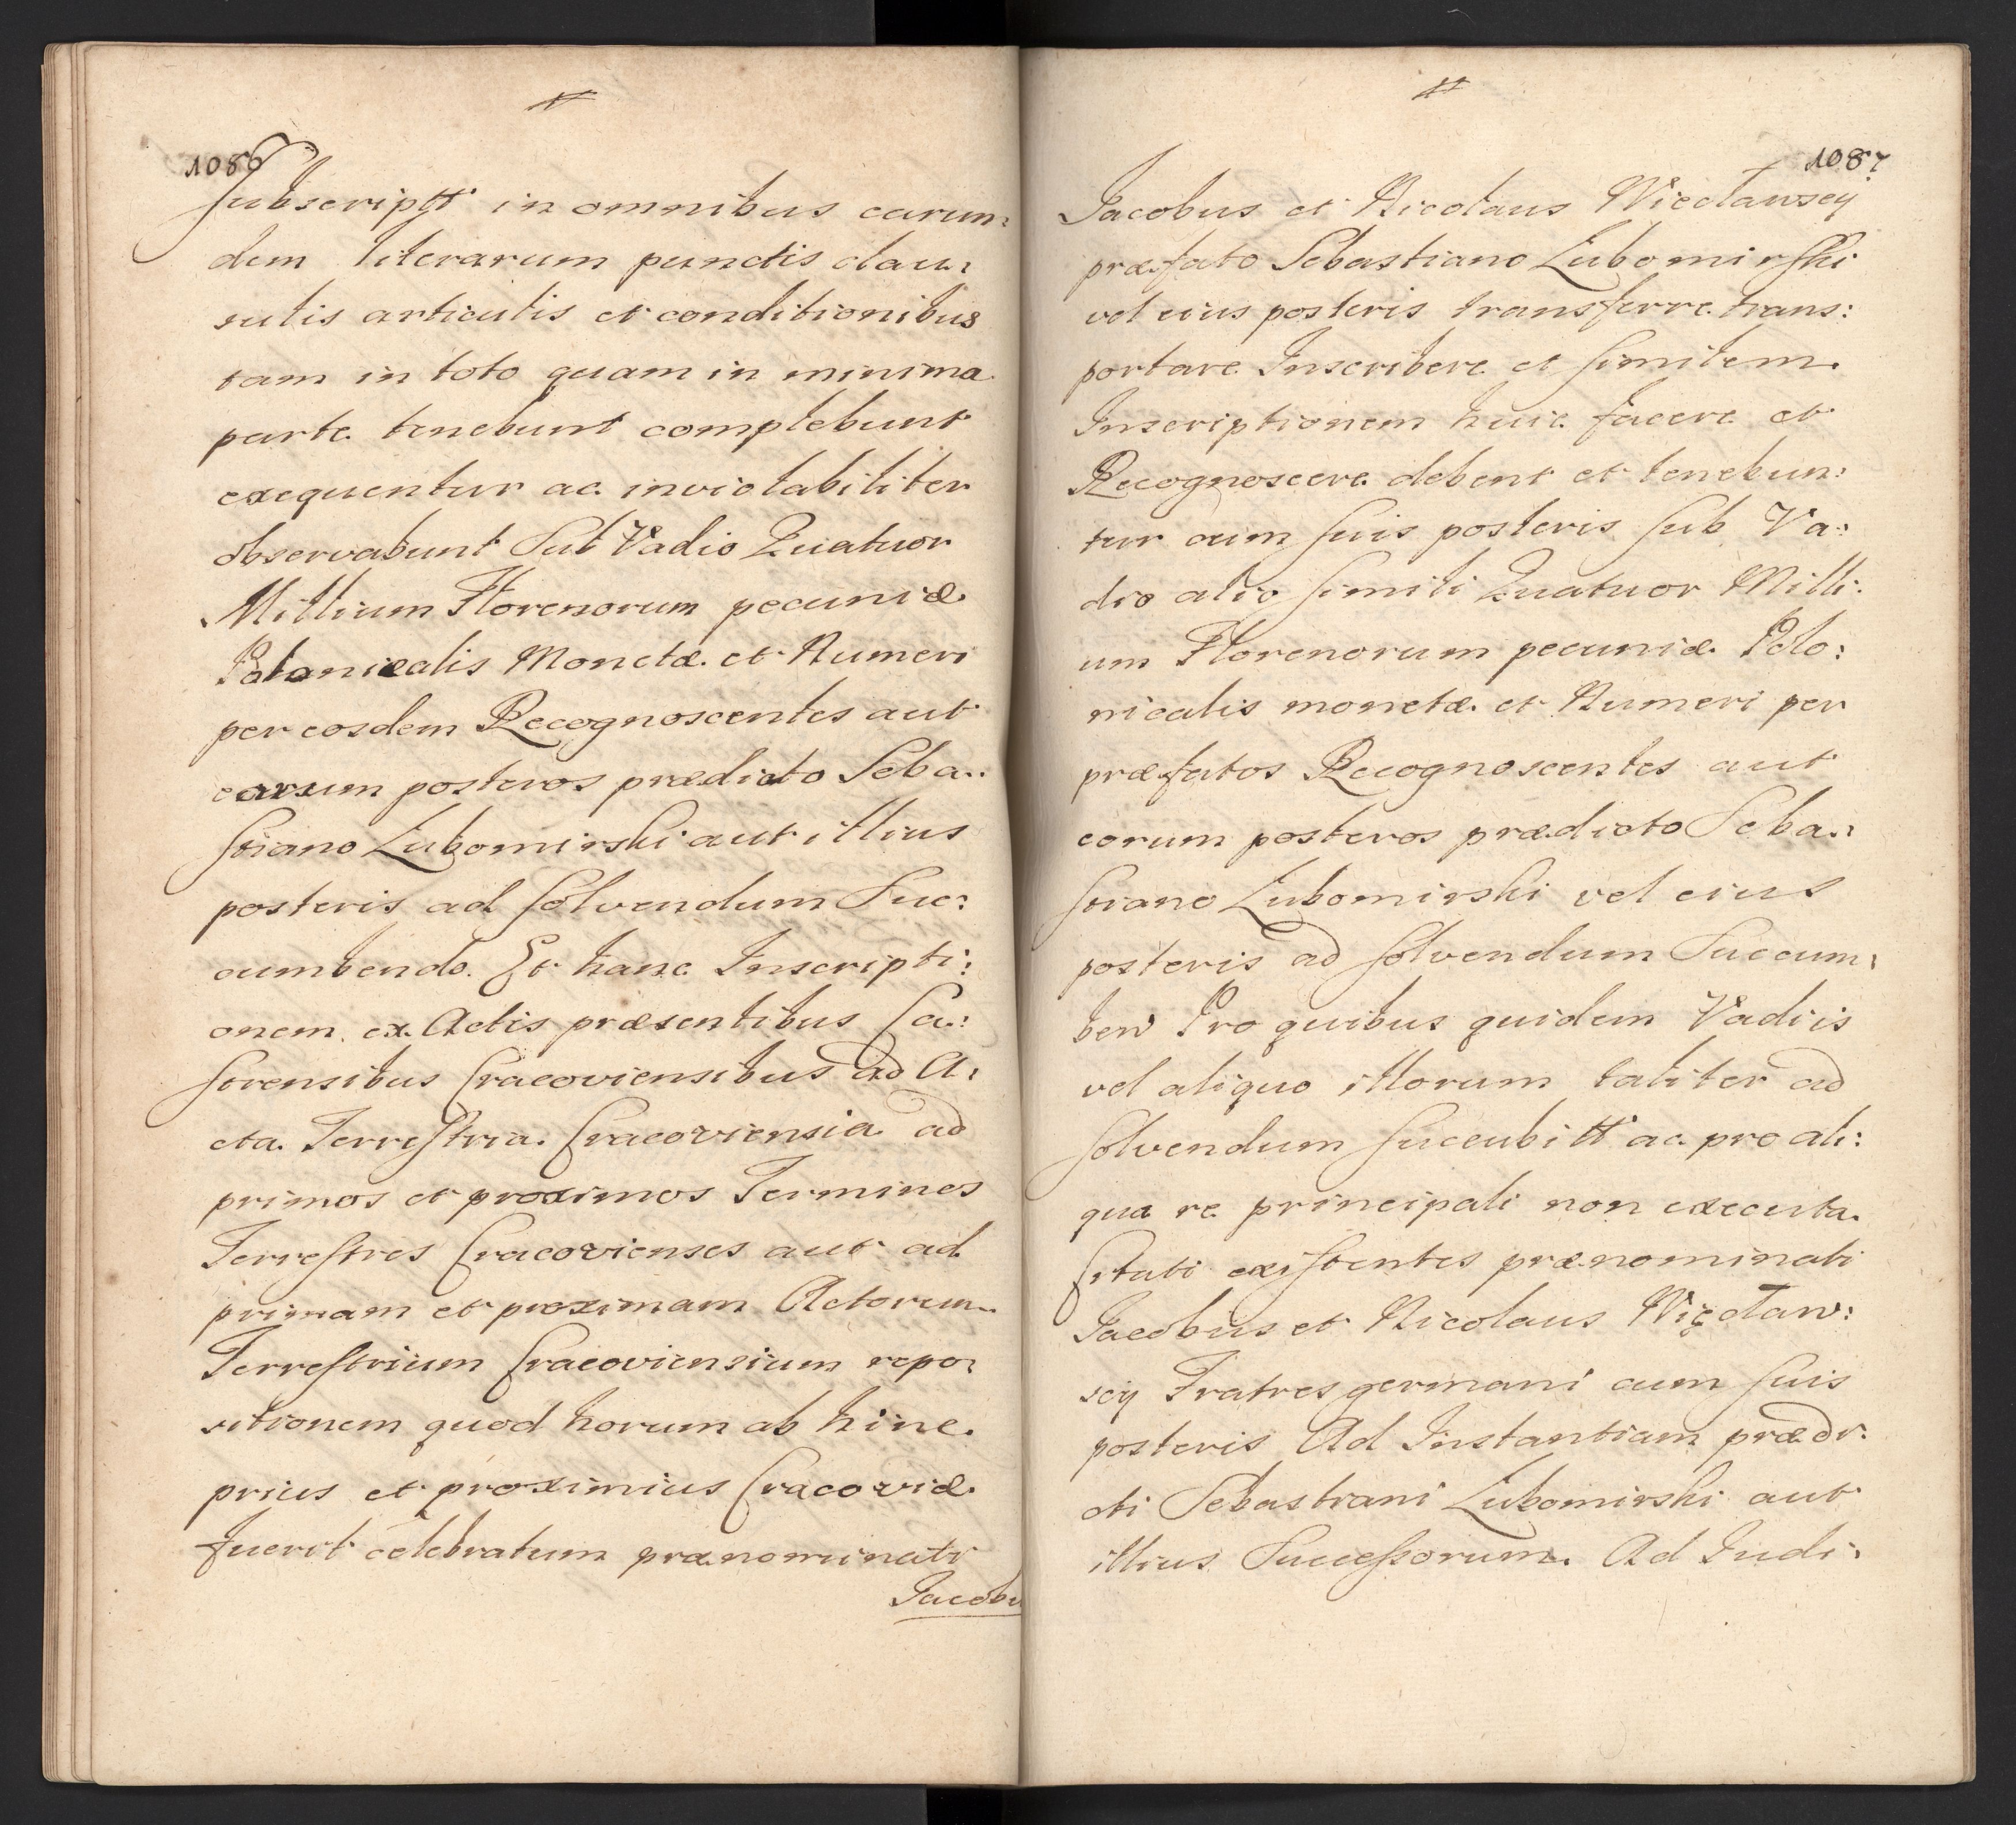 1086
Subscriptt in omnibus earun:
dem literarum punctis clau:
sulis articulis et conditionibus
tam in toto quam in minima
parte tenebunt complebunt
exequentur ac inviolabiliter
observabunt Sub Vadio Quatuor
Millium Florenorum pecuniæ
Polonicalis Monetæ et Numeri
per eosdem Recognoscentes aut
earum posteros prædicto Seba:
stiano Lubomirski aut illius
posteris ad solvendum Suc:
cumbendo. Et hanc Inscripti:
onem ex Actis præsentibus Ca:
strensibus Cracoviensibus ad A:
cta Terrestria Cracoviensia ad
primos et proximos Terminos
Terrestres Cracovienses aut ad
primam et proximam Actorum
Terrestrium Cracoviensium repo:
sitionem quod horum ab hinc
prius et proximius Cracoviæ
fuerit celebratum prænominati
Jacobu
1087
Jacobus et Nicolaus Wiecławscy
præfato Sebastiano Lubomirski
vel eius posteris transferre trans:
portare Inscribere et similem
Inscriptionem huic facere et
Recognoscere debent et tenebun:
tur cum suis posteris sub Va:
dio alio simili Quatuor Milli:
um Florenorum pecuniæ Polo:
nicalis monetæ et Numeri per
præfatos Recognoscentes aut
eorum posteros prædicto Seba:
stiano Lubomirski vel eius
posteris ad solvendum Succum:
ben Pro quibus quidem Vadiis
vel aliquo illorum taliter ad
solvendum succubitt ac pro ali:
qua re principali non executa
Citati existentes prænominati
Jacobus et Nicolaus Więcław:
scy Fratres germani cum suis
posteris Ad Instantiam prædi:
cti Sebastiani Lubomirski aut
illius Successorum. Ad Judi: